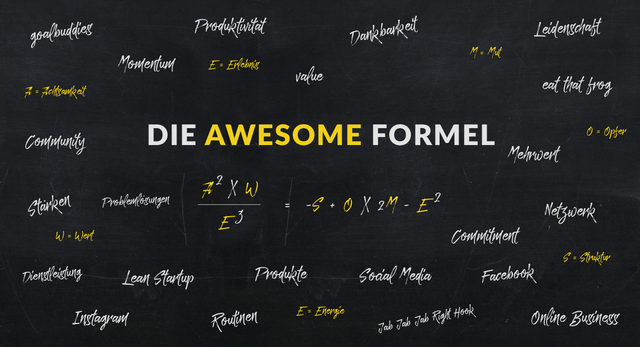 goalbuddies
Produktivität
Dankbarkeit
Leidenschaft
M = Mut
Momentum
E = Erlebnis
value
eat that frog
A = Achtsamkeit
O = Opfer
Community
DIE AWESOME FORMEL
Mehrwert
Stärken
Problemlösungen
A² X W
E³
= -S + O X 2M - E²
Netzwerk
W = Wert
Commitment
S = Struktur
Dienstleistung
Lean Startup
Produkte
Social Media
Facebook
Instagram
Routinen
E = Energie
Jab Jab Jab Right Hook
Online Business